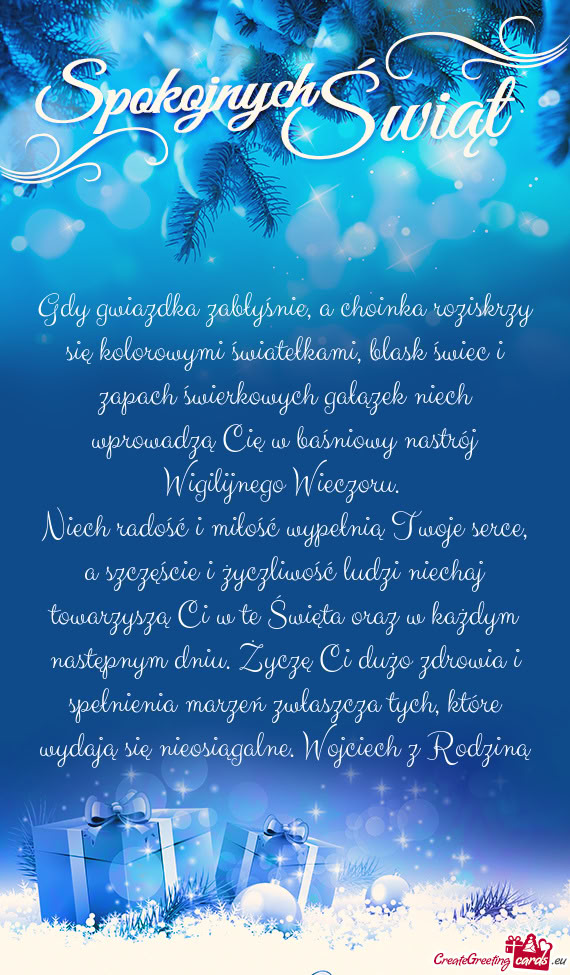 Spokojnych Świąt
Gdy gwiazdka zabłyśnie, a choinka roziskrzy
się kolorowymi światełkami, blask świec i
zapach świerkowych gałązek niech
wprowadzą Cię w baśniowy nastrój
Wigilijnego Wieczoru.
Niech radość i miłość wypełnią Twoje serce,
a szczęście i życzliwość ludzi niechaj
towarzyszą Ci w te Święta oraz w każdym
następnym dniu. Życzę Ci dużo zdrowia i
spełnienia marzeń zwłaszcza tych, które
wydają się nieosiągalne. Wojciech z Rodziną
CreateGreeting cards .eu